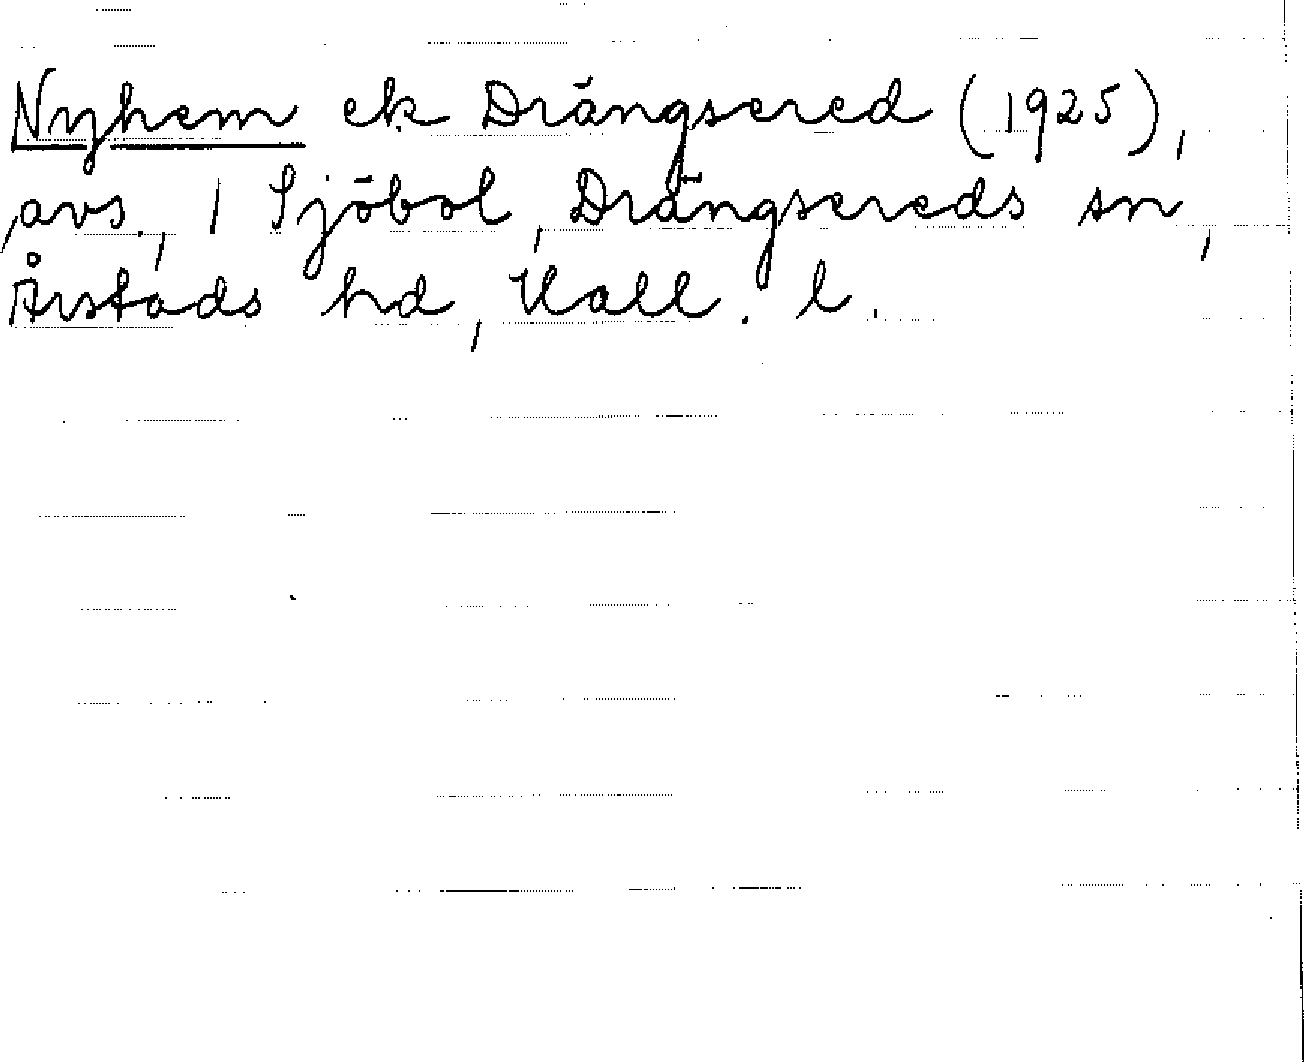 Nyhem ek Drängsered (1925),
avs., 1 Sjöbol, Drängsereds sn,
Årstads hd, Hall. l.